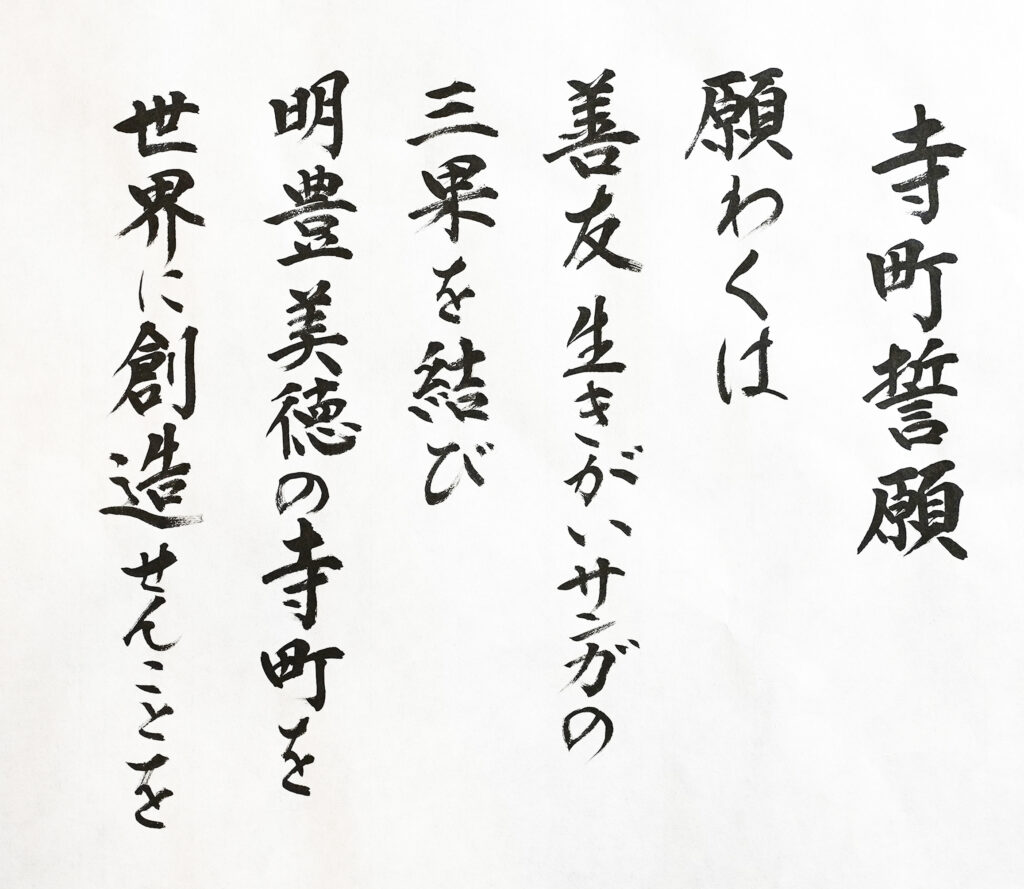 寺町誓願
願わくは
善友生きがいサンガの
三果を結び
明豊美徳の寺町を
世界に創造せんことを